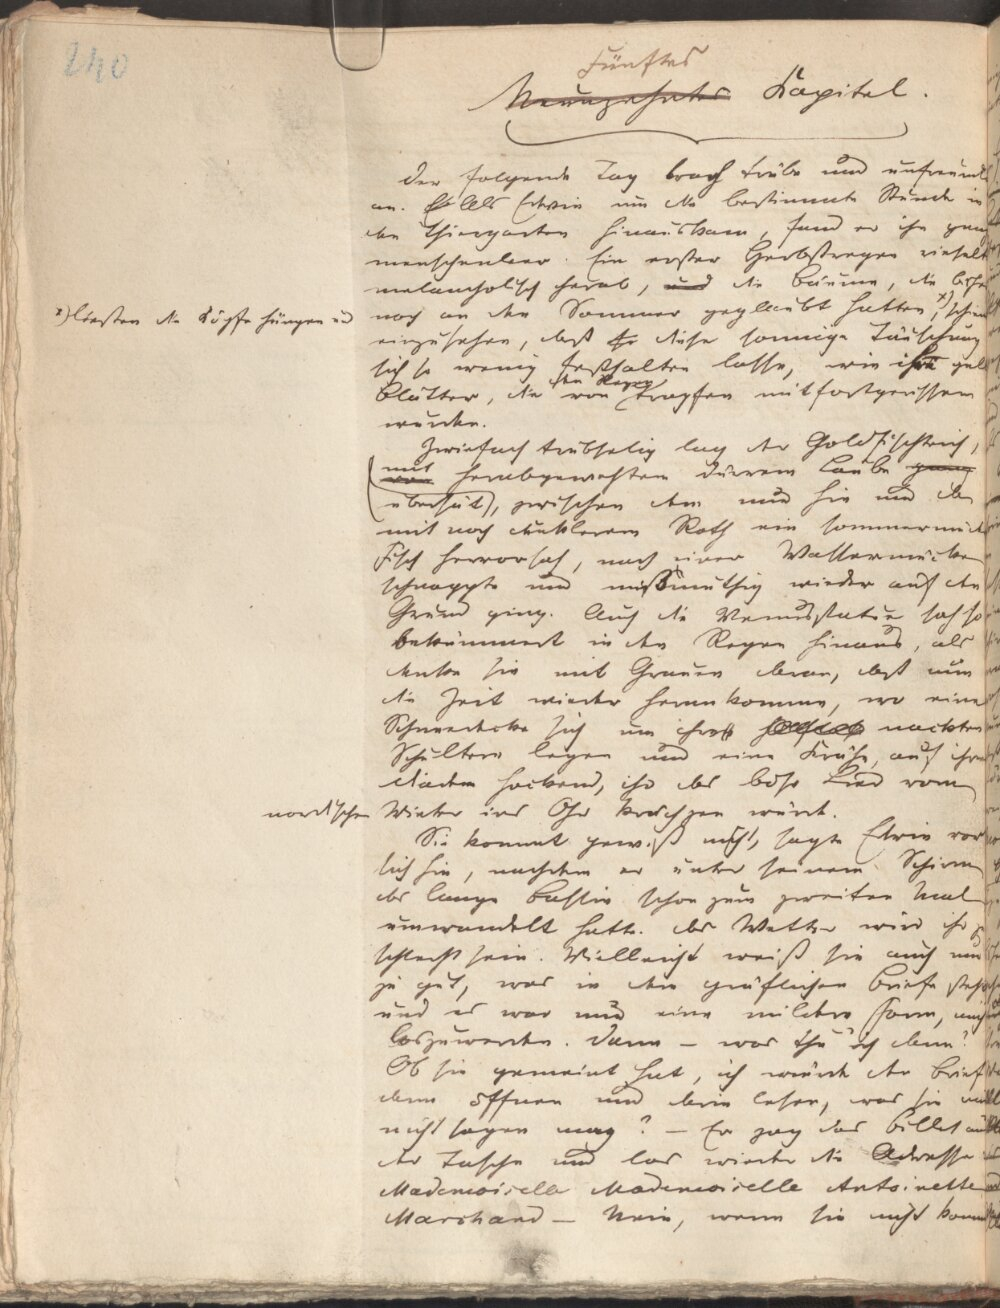 240
Fünftes
Neunzehntes Kapitel.
Der folgende Tag brach trübe und unfreundl
an. Als Edwin um die bestimmte Stunde in
den Thiergarten hinauskam, fand er ihn ganz
menschenleer. Ein erster Herbstregen rieselt
melancholisch herab, und die Bäume, die bisher
x) ließen die Köpfe hängen und
noch an den Sommer geglaubt hatten, x) schien
einzusehen, daß diese sonnige Täuschung
sich so wenig festhalten lasse, wie ihre gelb
den Regen
Blätter, die von tropfen mit fortgerissen
wurden.
Zwiefach trübselig lag der Goldfischteich,
(mit herabgewehten dürrem Laube ganz
übersät), zwischen dem nun hin und da
mit noch dunklerem Roth ein sommermüder
Fisch hervorsah, nach einer Wassermücke
schnappte und mißmuthig wieder auf den
Grund ging. Auch die Venusstatue sah so
bekümmert in den Regen hinaus, als
denke sie mit Grauen daran, daß nun
die Zeit wieder herankomme, wo eine
Schneedecke sich um ihre nackten
Schultern legen und eine Krähe, auf ihrem
Diadem hockend, ihr das böse Lied vom
nordischen Winter ins Ohr krächzen würde.
Sie kommt gewiß nicht, sagte Edwin vor
sich hin, nachdem er unter seinem Schirm
das lange Bassin schon zum zweiten Mal
umwandelt hatte. Das Wetter wird ihr zu
schlecht sein. Vielleicht weiß sie auch nur
zu gut, was in dem gräflichen Briefe steht
und es war nur eine mildere Form, mich
loszuwerden. Dann – was thu' ich dann?
Ob sie gemeint hat, ich würde den Brief
dann öffnen und darin lesen, was sie mir
nicht sagen mag? – Er zog das Billet aus
der Tasche und las wieder die Adresse
Mademoiselle Mademoiselle Antoinette
Marchand – Nein, wenn sie nicht kommt